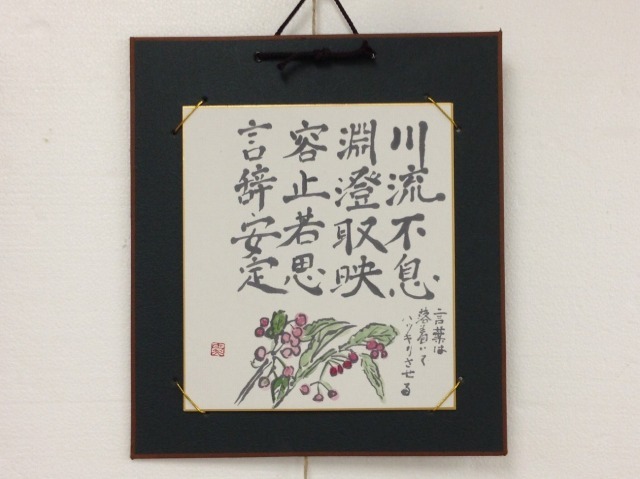 川流不息
淵澄取映
容止若思
言辞安定
言葉は
落着いて
ハッキリさせる